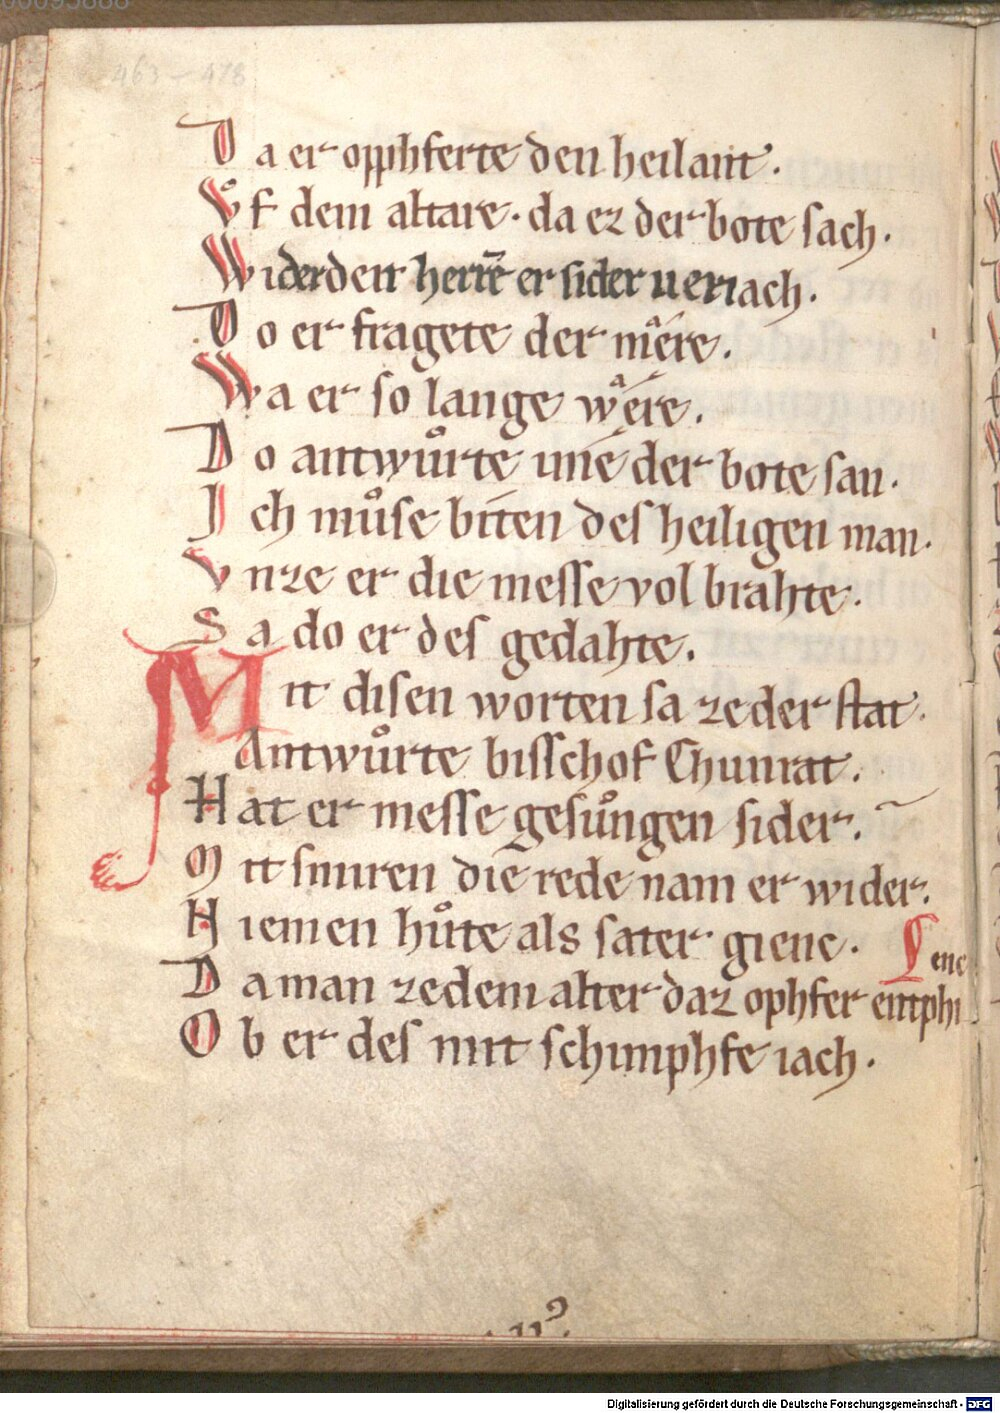 463 – 478
Da er opphferte den heilant.
Vͦf dem altare. da ez der bote sach.
Widerdeɴ herrē er sider ueriach.
Do er fragete der mêre.
Wa er so lange wêre.
Do antwuͦrte ime der bote san.
Ich muͦse biten des heiligen man.
Vnze er die messe vol brahte.
Sa do er des gedahte.
Mit disen worten sa zeder stat.
Antwuͦrte bisschof Chunrat.
Hat er messe gesuͦngen sider.
Mit snuren die rede nam er wider.
Niemen huͦte als sater giene.
Da man zedem alter daz ophfer entphi
ene
Ob er des mit schimphfe iach.
.II⁹.
Digitalisierung gefördert durch die Deutsche Forschungsgemeinschaft - DFG